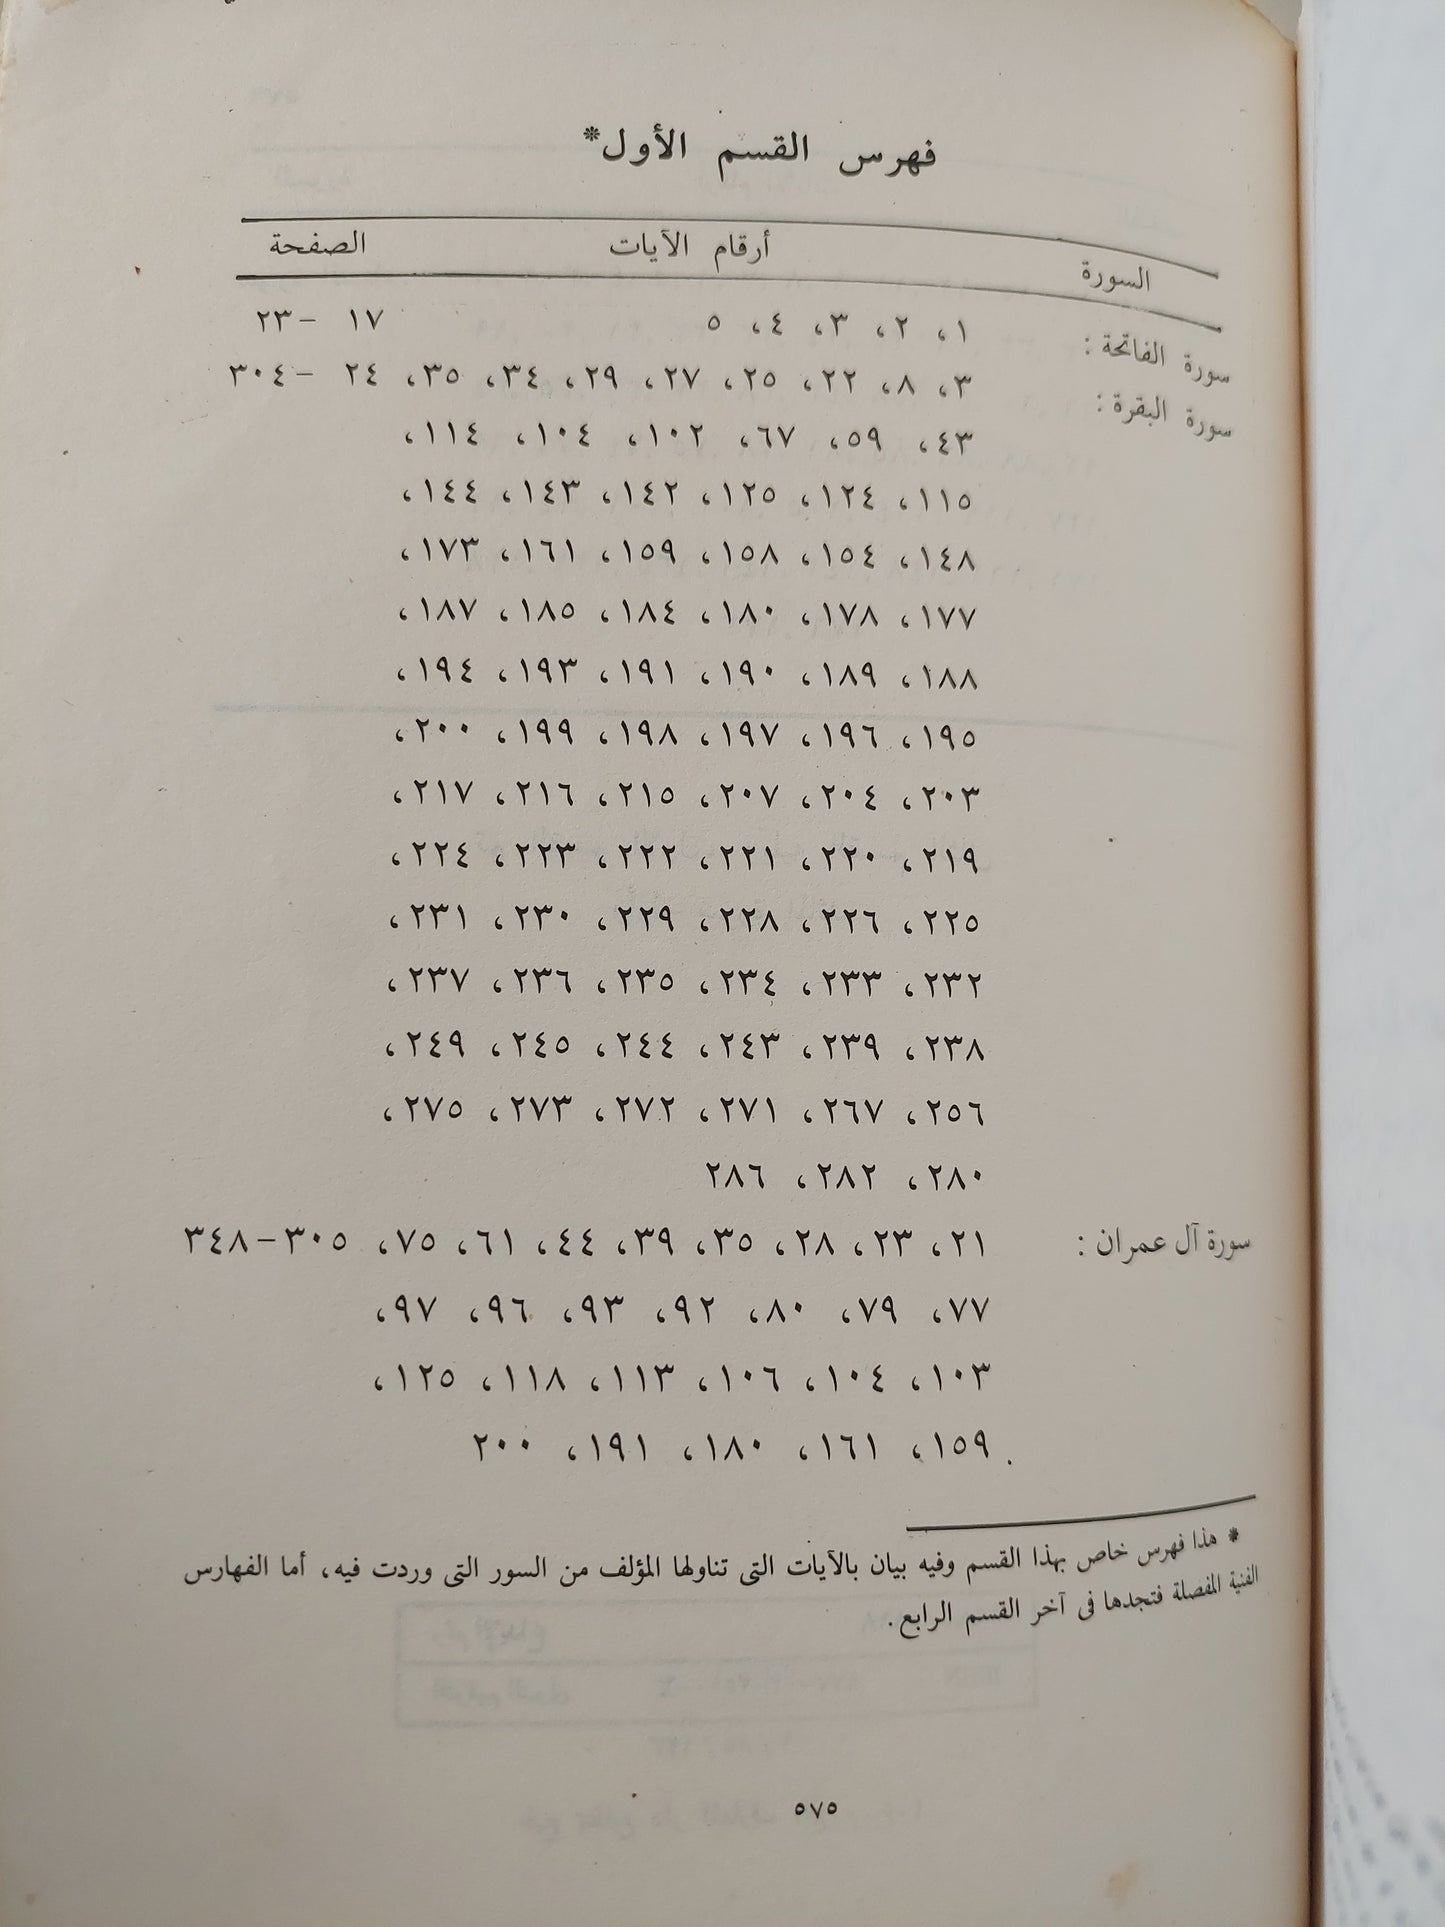 فهرس القسم الأول*
السورة أرقام الآيات الصفحة
سورة الفاتحة : ١، ٢، ٣، ٤، ٥ ١٧ -٢٣
سورة البقرة : ٣، ٨، ٢٢، ٢٥، ٢٧، ٢٩، ٣٤، ٣٥، ٢٤ -٣٠٤
٤٣، ٥٩، ٦٧، ١٠٢، ١٠٤، ١١٤،
١١٥، ١٢٤، ١٢٥، ١٤٢، ١٤٣، ١٤٤،
١٤٨، ١٥٤، ١٥٨، ١٥٩، ١٦١، ١٧٣،
١٧٧، ١٧٨، ١٨٠، ١٨٤، ١٨٥، ١٨٧،
١٨٨، ١٨٩، ١٩٠، ١٩١، ١٩٣، ١٩٤،
١٩٥، ١٩٦، ١٩٧، ١٩٨، ١٩٩، ٢٠٠،
٢٠٣، ٢٠٤، ٢٠٧، ٢١٥، ٢١٦، ٢١٧،
٢١٩، ٢٢٠، ٢٢١، ٢٢٢، ٢٢٣، ٢٢٤،
٢٢٥، ٢٢٦، ٢٢٨، ٢٢٩، ٢٣٠، ٢٣١،
٢٣٢، ٢٣٣، ٢٣٤، ٢٣٥، ٢٣٦، ٢٣٧،
٢٣٨، ٢٣٩، ٢٤٣، ٢٤٤، ٢٤٥، ٢٤٩،
٢٥٦، ٢٦٧، ٢٧١، ٢٧٢، ٢٧٣، ٢٧٥،
٢٨٠، ٢٨٢، ٢٨٦
سورة آل عمران : ٢١، ٢٣، ٢٨، ٣٥، ٣٩، ٤٤، ٦١، ٧٥، ٣٠٥-٣٤٨
٧٧، ٧٩، ٨٠، ٩٢، ٩٣، ٩٦، ٩٧،
١٠٣، ١٠٤، ١٠٦، ١١٣، ١١٨، ١٢٥،
١٥٩، ١٦١، ١٨٠، ١٩١، ٢٠٠
* هذا فهرس خاص بهذا القسم وفيه بيان بالآيات التى تناولها المؤلف من السور التى وردت فيه، أما الفهارس
الفنية المفصلة فتجدها فى آخر القسم الرابع.
٥٧٥